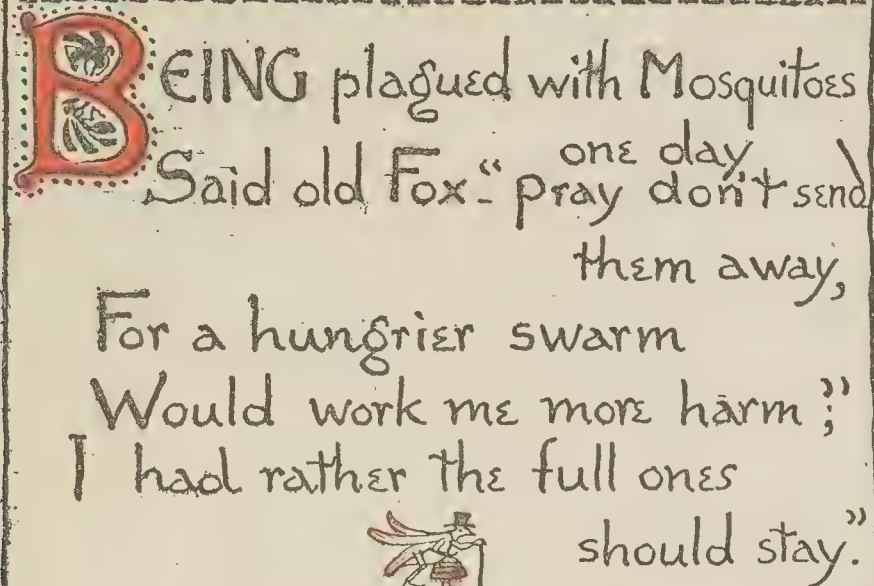 BEING plagued with Mosquitoes
one day
Said old Fox-"pray don't send
them away,
For a hungrier swarm
Would work me more harm;"
I had rather the full ones
should stay."